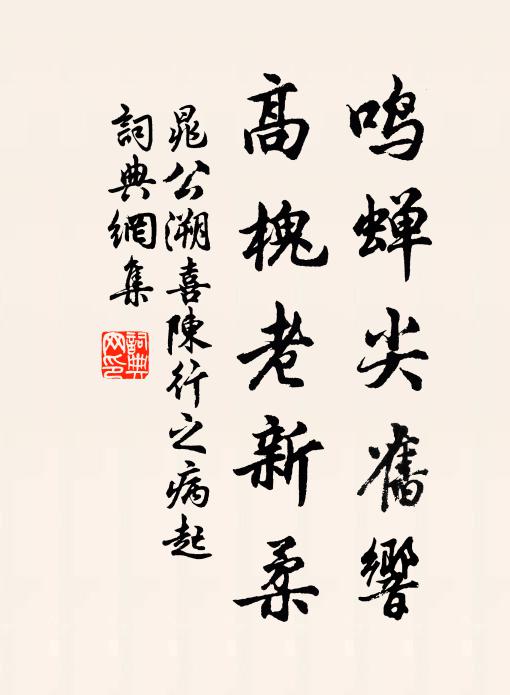 鸣蝉尖舊響
髙槐老新柔
晁公溯喜陳行之病起
詞典網集
詞典网印